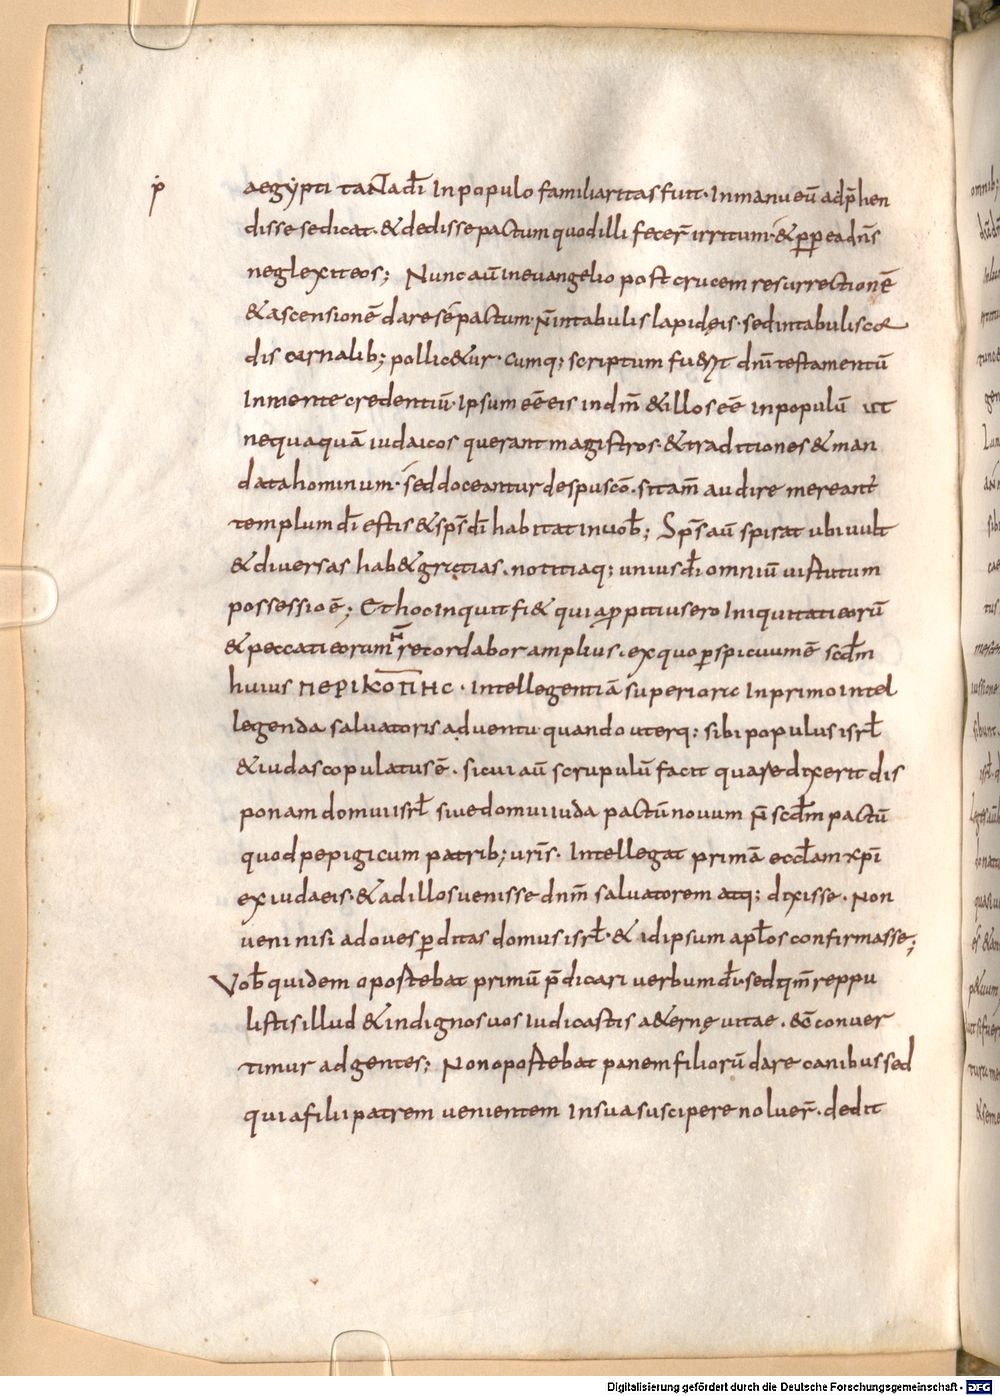 ṗ
aegypti taNadī In populo familiaritas fuit· In manu eū adp̄hen
disse se dicat· & dedisse pactum quod illi fecer̄ irritum· & ꝓpea dn̄s
neglexit eos; Nunc aū in euangelio post crucem resurrectionē
& ascensionē dare sē pactum· n̄ in tabulis lapideis· sed in tabulis cor
dis carnalib; pollic&ur· Cumq; scriptum fu&it dn̄i testamentū
In mente credentiū· Ipsum eē eis in dm̄ & illos eē in populū ut
nequaquā iudaicos querant magistros· & traditiones & man
data hominum· sed doceantur de spu sco̅· si tam̄ audire mereant᷑
templum dī estis & sps̄ dī habitat in uob̄; Sps̄ aū spirat ubi uult
& diuersas hab& gratias· notitiaq; unius dī omniū uirtutum
possessio ē; Et hoc inquit fi& quia ꝓpitius ero Iniquitati eorū
& peccati eorum n̄ recordabor amplius· ex quo ꝑspicuum ē scdm̄
huius ΠΕΡΙΚΟΠΗC· Intellegentiā superioris In primo intel
legenda saluatoris aduentu quando uterq; sibi populus isrl̄
& iudas copulatus ē· si cui aū scrupulū facit quare dixerit dis
ponam domui isrl̄ siue domui iuda pactū nouum n̄ scdm̄ pactū
quod pepigi cum patrib; ur̄is· Intellegat primā eccl̄am xp̄i
ex iudaeis· & ad illos uenisse dnm̄ saluatorem atq; dixisse· Non
ueni nisi ad oues ꝑditas domus isrl̄· & id ipsum apl̄os confirmasse;
Vob̄ quidem oportebat primū p̄dicari uerbum dī· sed qm̄ reppu
listis illud & indignos uos Iudicastis a&erne uitae· ecc̄ conuer
timur ad gentes; Non oportebat panem filiorū dare canibus sed
quia filii patrem uenientem In sua suscipere noluer̄· dedit
Digitalisierung gefördert durch die Deutsche Forschungsgemeinschaft - DFG